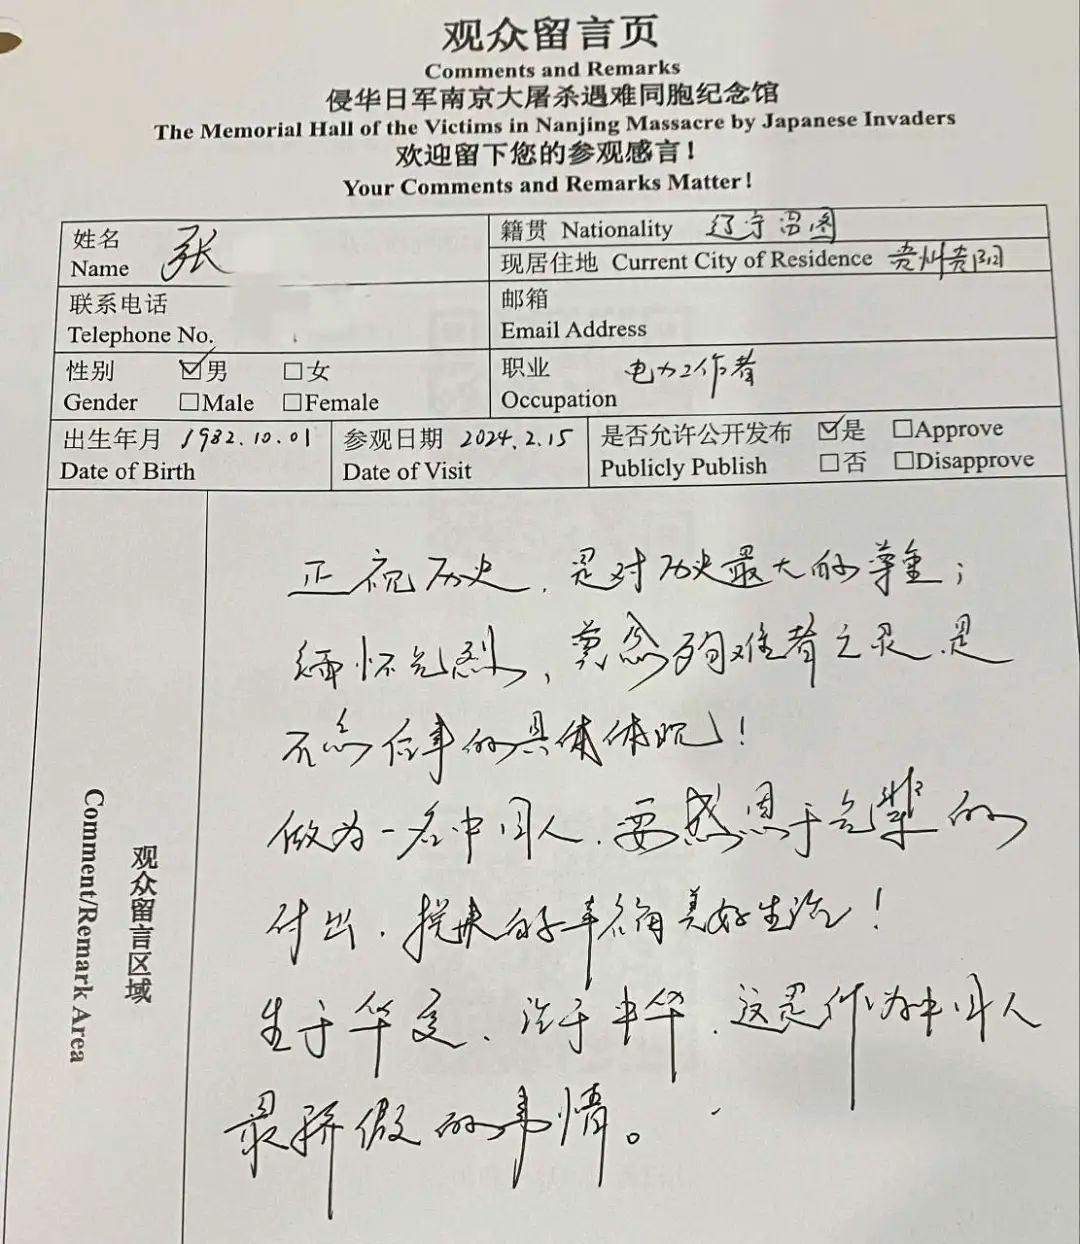 观众留言页
Comments and Remarks
侵华日军南京大屠杀遇难同胞纪念馆
The Memorial Hall of the Victims in Nanjing Massacre by Japanese Invaders
欢迎留下您的参观感言！
Your Comments and Remarks Matter！
姓名
Name
张
籍贯 Nationality 辽宁昌图
现居住地 Current City of Residence 贵州贵阳
联系电话
Telephone No.
邮箱
Email Address
性别 ☑男 □女
Gender □Male □Female
职业
Occupation
电力工作者
出生年月 1982.10.01
Date of Birth
参观日期 2024.2.15
Date of Visit
是否允许公开发布 ☑是 □Approve
Publicly Publish □否 □Disapprove
观众留言区域
Comment/Remark Area
正视历史，是对历史最大的尊重；
缅怀先烈，奠念殉难者之灵，是
不忘往事的具体体现！
做为一名中国人，要感恩于先辈的
付出，换来的幸福美好生活！
生于华夏、活于中华，这是作为中国人
最骄傲的事情。